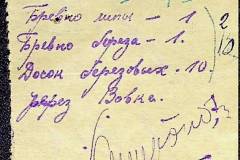 Бревно липы - 1
Бревно береза - 1. 2/10
Досок березовых - 10.
через Вовка.